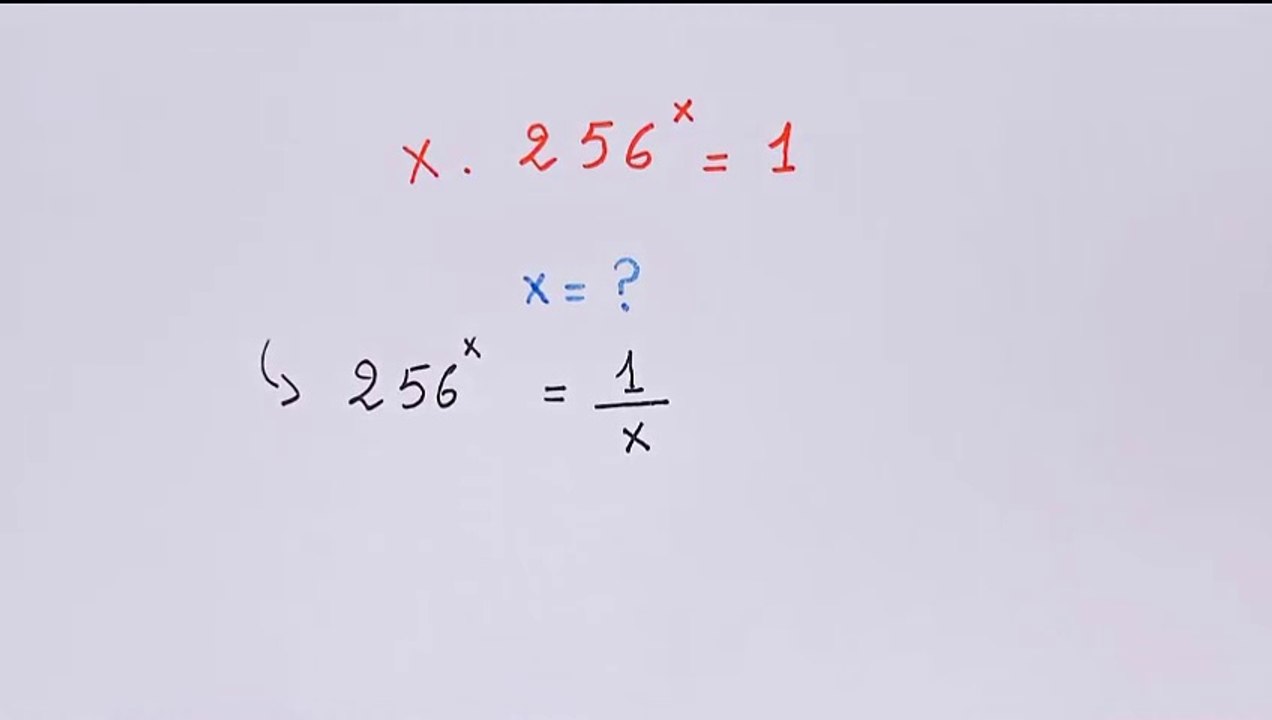 x . 256^x = 1
x = ?
↳ 256^x = 1/x